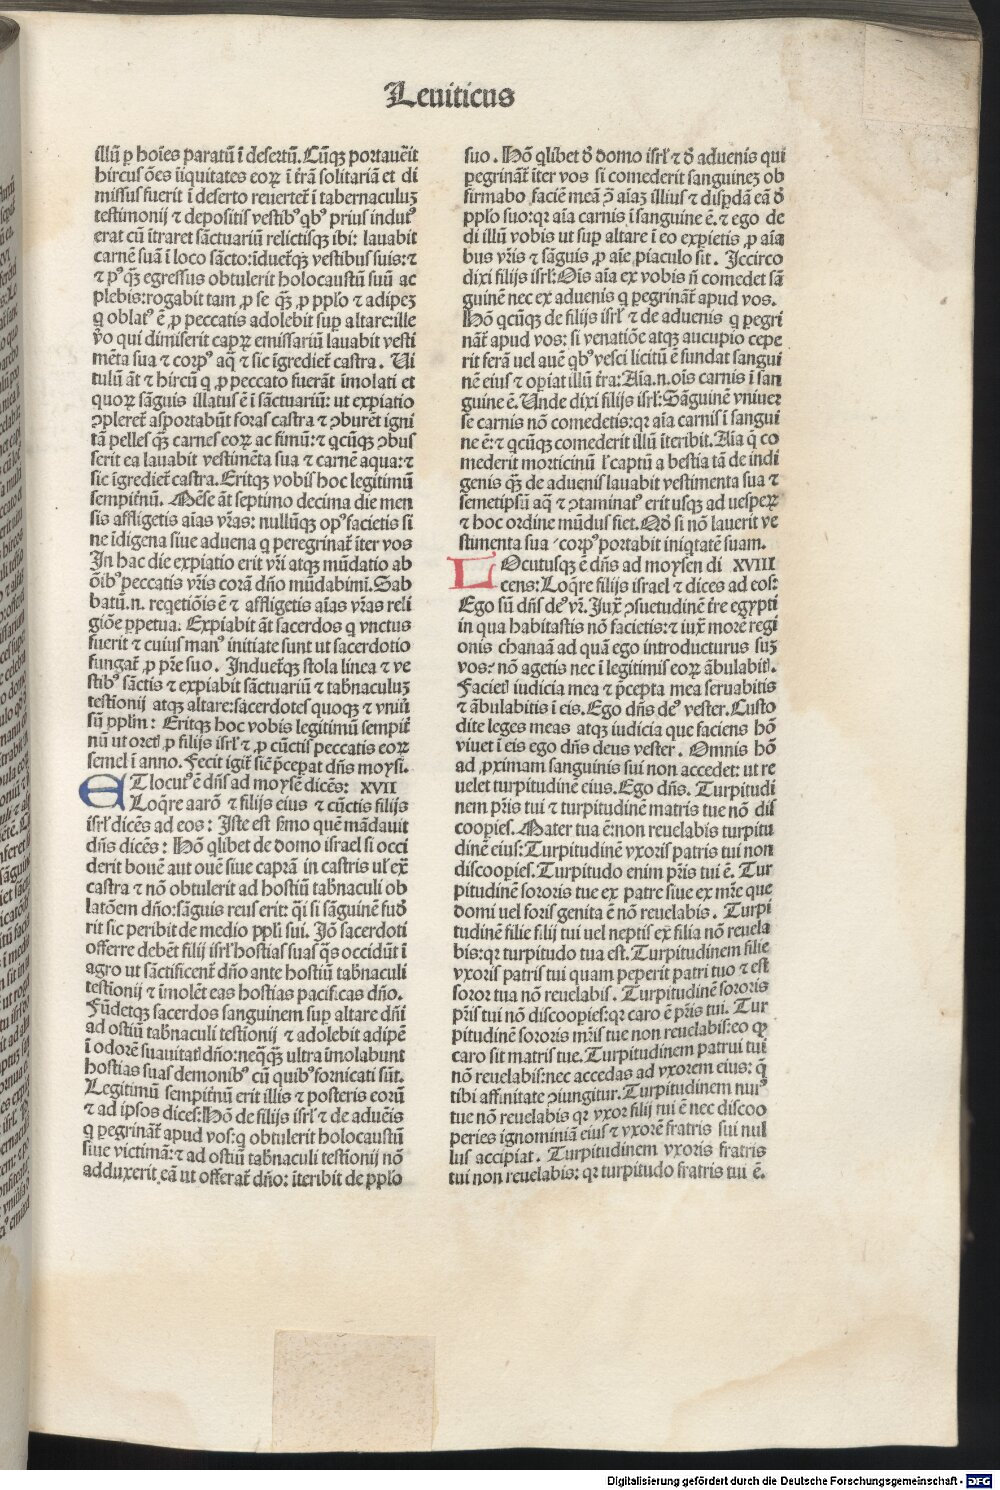 Leuiticus
illũ ꝑ hoĩes paratũ ĩ desertũ. Cũqꝫ portauẽit
hircus ões iĩquitates eoꝝ ĩ t̃rã solitariã et di
missus fuerit ĩ deserto reuertet̃ ĩ tabernaculuꝫ
testimonij ⁊ depositis vestibꝰ qbꝰ prius indutꝰ
erat cũ ĩtraret sãctuariũ relictisqꝫ ibi: lauabit
carnẽ suã ĩ loco sãcto: ĩduet̃qꝫ vestibus suis: ⁊
⁊ pꝰ qꝫ egressus obtulerit holocaustũ suũ ac
plebis: rogabit tam ꝓ se qꝫ ꝓ pplo ⁊ adipeꝫ
q oblatꝰ ẽ ꝓ peccatis adolebit suꝑ altare: ille
ṽo qui dimiserit capꝝ emissariũ lauabit vesti
mẽta sua ⁊ corpꝰ aq̃ ⁊ sic ĩgrediet̃ castra. Ui
tulũ ãt ⁊ hircũ q ꝓ peccato fuerãt ĩmolati et
quoꝝ sãguis illatus ẽ ĩ sãctuariũ: ut expiatio
ↄpleret̃ asportabũt foras castra ⁊ ↄburẽt igni
tã pelles qꝫ carnes eoꝝ ac fimũ: ⁊ qcũqꝫ ↄbus
serit ea lauabit vestimẽta sua ⁊ carnẽ aqua: ⁊
sic ĩgrediet̃ castra. Eritqꝫ vobis hoc legitimũ
sempit̃nũ. Mẽse ãt septimo decima die men
sis affligetis aĩas vr̃as: nullũqꝫ opꝰ facietis si
ne ĩdigena siue aduena q peregrinat̃ ĩter vos
In hac die expiatio erit vr̃i atqꝫ mũdatio ab
õibꝰ peccatis vr̃is corã dño mũdabimĩ. Sab
batũ .n. reqetiõis ẽ ⁊ affligetis aĩas vr̃as reli
giõe ꝑpetua. Expiabit ãt sacerdos q vnctus
fuerit ⁊ cuius manꝰ initiate sunt ut sacerdotio
fungat̃ ꝓ pr̃e suo. Induet̃qꝫ stola linea ⁊ ve
stibꝰ sãctis ⁊ expiabit sãctuariũ ⁊ tab̃naculuꝫ
testĩonij atqꝫ altare: sacerdotes quoqꝫ ⁊ vniũ
sũ pplm̃: Eritqꝫ hoc vobis legitimũ sempit̃
nũ ut oret̃ ꝓ filijs isrl̃ ⁊ ꝓ cũctis peccatis eoꝝ
semel ĩ anno. Fecit igit̃ sic p̃cepat dñs moysi.
ETlocutꝰ ẽ dñs ad moysẽ dicẽs: XVII
Loq̃re aarõ ⁊ filijs eius ⁊ cũctis filijs
isrl̃ dicẽs ad eos: Iste est sm̃o quẽ mãdauit
dñs dicẽs: Hõ qlibet de domo israel si occi
derit bouẽ aut ouẽ siue caprã in castris ul̃ ex̃
castra ⁊ nõ obtulerit ad hostiũ tab̃naculi ob
latõem dño: sãguis reus erit: q̃i si sãguinẽ fud̃
rit sic peribit de medio ppli sui. Iõ sacerdoti
offerre debẽt filij isrl̃ hostias suas q̃s occidũt ĩ
agro ut sãctificent̃ dño ante hostiũ tab̃naculi
testĩonij ⁊ ĩmolẽt eas hostias pacificas dño.
Fũdetqꝫ sacerdos sanguinem suꝑ altare dñi
ad ostiũ tab̃naculi testĩonij ⁊ adolebit adipẽ
ĩ odorẽ suauitat̃ dño: neq̃qꝫ ultra ĩmolabunt
hostias suas demonibꝰ cũ quibꝰ fornicati sũt.
Legitimũ sempit̃nũ erit illis ⁊ posteris eorũ
⁊ ad ipsos dices: Hõ de filijs isrl̃ ⁊ de aduẽis
q ꝑegrinãt̃ apud vos: q obtulerit holocaustũ
siue victimã: ⁊ ad ostiũ tab̃naculi testĩonij nõ
adduxerit eã ut offerat̃ dño: ĩteribit de pplo
suo. Hõ qlibet d̃ domo isrl̃ ⁊ d̃ aduenis qui
ꝑegrinãt̃ ĩter vos si comederit sanguineꝫ ob
firmabo faciẽ meã ↄ̃ aĩaꝫ illius ⁊ disꝑdã eã d̃
pplo suo: qꝛ aĩa carnis ĩ sanguine ẽ. ⁊ ego de
di illũ vobis ut suꝑ altare ĩ eo expietis ꝓ aĩa
bus vr̃is ⁊ sãguis ꝓ aĩe piaculo sit. Iccirco
dixi filijs isrl̃: Oĩs aĩa ex vobis ñ comedet sã
guinẽ nec ex aduenis q ꝑegrinãt̃ apud vos.
Hõ qcũqꝫ de filijs isrl̃ ⁊ de aduenis q ꝑegri
nãt̃ apud vos: si venatiõe atqꝫ aucupio cepe
rit ferã vel auẽ qbꝰ vesci licitũ ẽ fundat sangui
nẽ eius ⁊ oꝑiat illũ t̃ra: Aĩa .n. oĩs carnis ĩ san
guine ẽ. Unde dixi filijs isrl̃: Sãguinẽ vniuer
se carnis nõ comedetis: qꝛ aĩa carnis ĩ sangui
ne ẽ: ⁊ qcũqꝫ comederit illũ ĩteribit. Aĩa q̃ co
mederit morticinũ l̃ captũ a bestia tã de indi
genis qꝫ de aduenis lauabit vestimenta sua ⁊
semetipsũ aq̃ ⁊ ↄtaminatꝰ erit usqꝫ ad uespeꝝ
⁊ hoc ordine mũdus fiet. Qd̃ si nõ lauerit ve
stimenta sua ⁊ corpꝰ portabit iniq̃tatẽ suam.
LOcutusqꝫ ẽ dñs ad moysen di XVIII
cens: Loq̃re filijs israel ⁊ dices ad eos:
Ego sũ dñs deꝰ vr̃. Iux̃ ↄsuetudinẽ t̃re egypti
in qua habitastis nõ facietis: ⁊ iux̃ morẽ regi
onis chanaã ad quã ego introducturus suꝫ
vos: nõ agetis nec ĩ legitimis eoꝝ ãbulabit̃.
Faciet̃ iudicia mea ⁊ p̃cepta mea seruabitis
⁊ ãbulabitis ĩ eis. Ego dñs deꝰ vester. Custo
dite leges meas atqꝫ iudicia que faciens hõ
viuet ĩ eis ego dñs deus vester. Omnis hõ
ad ꝓximam sanguinis sui non accedet: ut re
uelet turpitudinẽ eius. Ego dñs. Turpitudi
nem pr̃is tui ⁊ turpitudinẽ matris tue nõ dis
coopies. Mater tua ẽ: non reuelabis turpitu
dinẽ eius: Turpitudinẽ vxoris patris tui non
discoopies. Turpitudo enim pr̃is tui ẽ. Tur
pitudinẽ sororis tue ex patre siue ex mr̃e que
domi uel foris genita ẽ nõ reuelabis. Turpi
tudinẽ filie filij tui vel neptis ex filia nõ reuela
bis: qꝛ turpitudo tua est. Turpitudinem filie
vxoris patris tui quam peperit patri tuo ⁊ est
soror tua nõ reuelabis. Turpitudinẽ sororis
pr̃is tui nõ discoopies: qꝛ caro ẽ pr̃is tui. Tur
pitudinẽ sororis mr̃is tue non reuelabis: eo ꝙ
caro sit matris tue. Turpitudinem patrui tui
nõ reuelabis: nec accedas ad vxorem eius: q̃
tibi affinitate ↄiungitur. Turpitudinem nurꝰ
tue nõ reuelabis qꝛ vxor filij tui ẽ nec discoo
peries ignominiã eius ⁊ vxorẽ fratris sui nul
lus accipiat. Turpitudinem vxoris fratris
tui non reuelabis: qꝛ turpitudo fratris tui ẽ.
Digitalisierung gefördert durch die Deutsche Forschungsgemeinschaft - DFG